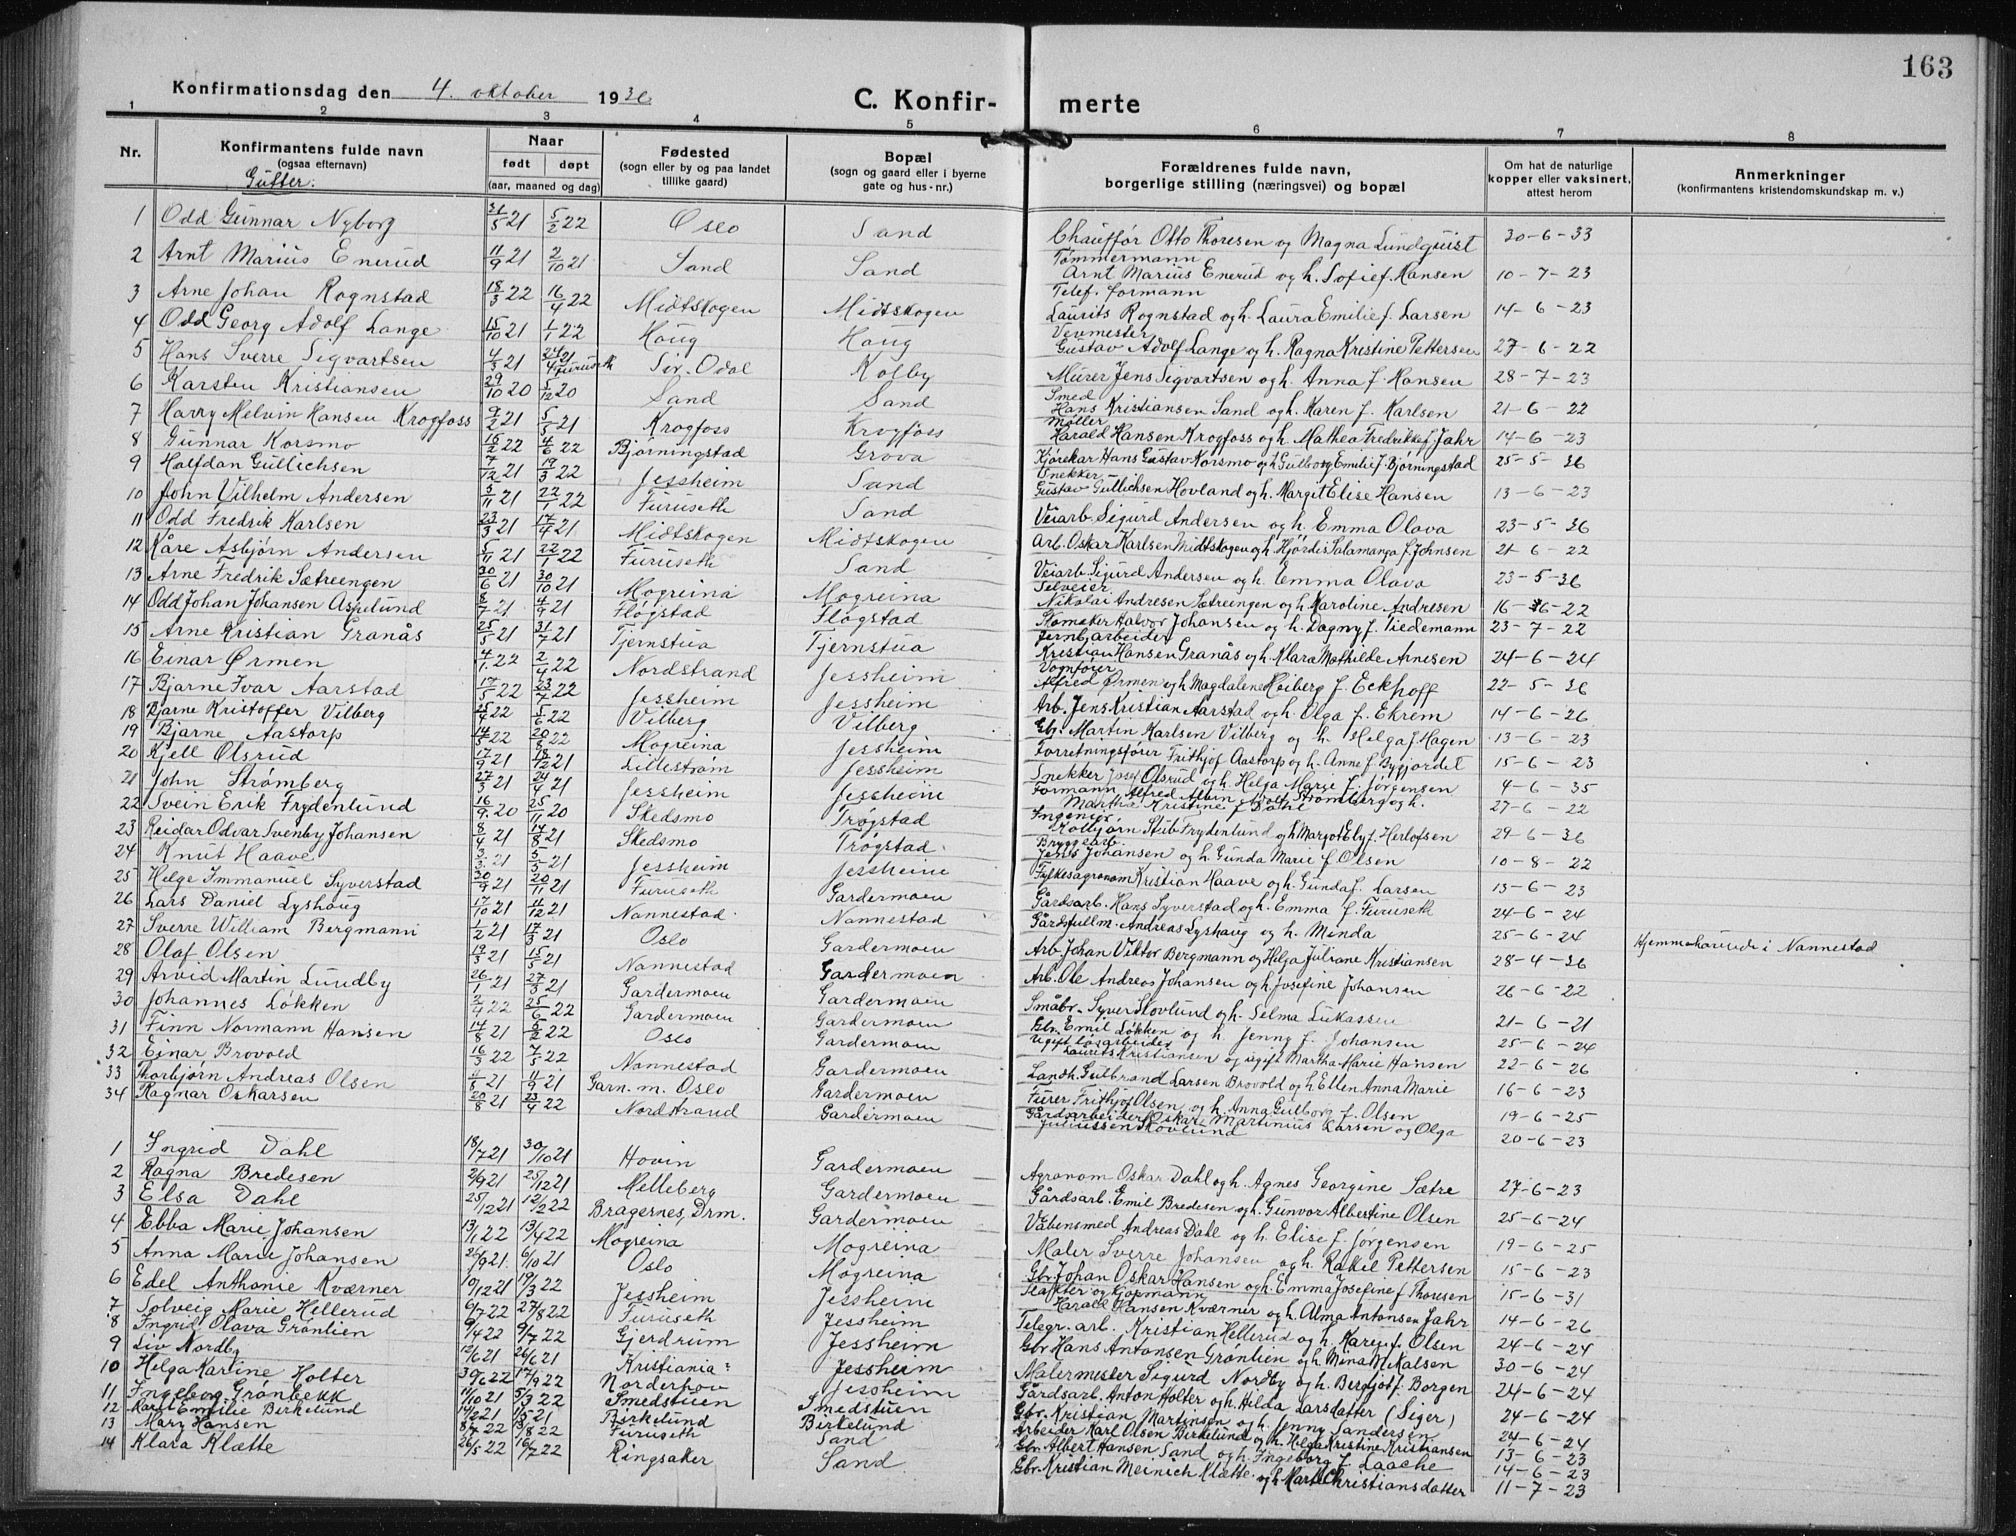 163
Konfirmationsdag den 4. oktober 1936
C. Konfir- merte
1 2 3 4 5 6 7 8
Nr. Konfirmantens fulde navn (ogsaa efternavn) Naar født døpt (aar, maaned og dag) Fødested (sogn eller by og paa landet tillike gaard) Bopæl (sogn og gaard eller i byerne gate og hus-nr.) Forældrenes fulde navn, borgerlige stilling (næringsvei) og bopæl Om hat de naturlige kopper eller vaksinert, attest herom Anmerkninger (konfirmantens kristendomskundskap m. v.)
Gutter:
1 Odd Gunnar Nyborg 31/5 21 5/2 22 Oslo Sand Chauffør Otto Thoresen og Magna Lundquist 30-6-33
2 Arnt Marius Enerud 11/9 21 2/10 21 Sand Sand Tømmermann Arnt Marius Enerud og h. Sofie f. Hansen 10-7-23
3 Arne Johan Rognstad 18/3 22 16/4 22 Midtskogen Midtskogen Telef. formann Laurits Rognstad og h. Laura Emilie f. Larsen 14-6-23
4 Odd Georg Adolf Lange 15/10 21 1/1 22 Haug Haug Veivmester Gustav Adolf Lange og h. Ragna Kristine Pettersen 27-6-22
5 Hans Sverre Sigvartsen 4/3 21 24/4 21 Furuseth Sør-Odal Kolby Murer Jens Sigvartsen og h. Anna f. Hansen 28-7-23
6 Karsten Kristiansen 29/10 20 5/12 20 Sand Sand Smed Hans Kristiansen Sand og h. Karen f. Karlsen 21-6-22
7 Harry Melvin Hansen Krogfoss 9/2 21 5/5 21 Krogfoss Krogfoss Møller Harald Hansen Krogfoss og h. Mathea Fredrikke f. Jahr 14-6-23
8 Gunnar Korsmo 16/2 22 4/6 22 Bjørningstad Grova Kjørekar Hans Gustav Korsmo og h Gulborg Emilie f. Bjørningstad 25-5-36
9 Halfdan Gullichsen 7/12 21 19/3 22 Jessheim Sand Snekker Gustav Gullichsen Hovland og h. Margit Elise Hansen 13-6-23
10 John Vilhelm Andersen 5/11 21 22/1 22 Furuseth Sand Veiarb. Sigurd Andersen og h. Emma Olava 23-5-36
11 Odd Fredrik Karlsen 23/3 21 17/4 21 Midtskogen Midtskogen Arb. Oskar Karlsen Midtskogen og h. Hjørdis Salamanga f. Johnsen 21-6-22
12 Kåre Asbjørn Andersen 5/11 21 22/1 22 Furuseth Sand Veiarb. Sigurd Andersen og h. Emma Olava 23-5-36
13 Arne Fredrik Sætreengen 30/6 21 30/10 21 Mogreina Mogreina Teleier Nikolai Andresen Sætreengen og h. Karoline Andresen 16-6-22
14 Odd Johan Johansen Aspelund 8/7 21 4/9 21 Fløgstad Fløgstad Skomaker Halvor Johansen og h. Dagny f. Tiedemann 23-7-22
15 Arne Kristian Granås 25/5 21 31/7 21 Tjernstua Tjernstua Jernbj.arbeider Kristian Hansen Granås og h. Klara Mathilde Arnesen 24-6-24
16 Einar Ørmen 4/1 22 2/4 22 Nordstrand Jessheim Vognfører Alfred Ørmen og h Magdalene Heiberg f. Eckhoff 22-5-36
17 Bjarne Ivar Aarstad 17/5 22 23/7 22 Jessheim Jessheim Arb. Jens Kristian Aarstad og h. Olga f. Ekrem 14-6-26
18 Bjarne Kristoffer Vilberg 25/4 22 5/6 22 Vilberg Vilberg Gbr. Martin Karlsen Vilberg og h. Helga f Hagen 13-6-23
19 Bjarne Aastorp 14/5 22 20/8 22 Mogreina Jessheim Forretningsfører Frithjof Aastorp og h. Anne f. Bygjordet 15-6-23
20 Kjell Olsrud 17/9 21 18/12 21 Lillestrøm Jessheim Snekker Josef Olsrud og h. Helga Marie f. Jørgensen 4-6-35
21 John Strømberg 27/3 21 24/4 21 Jessheim Jessheim Formann Alfred Albin Adolf Strømberg og h. Martha Kristine f Dahl 27-6-22
22 Svein Erik Frydenlund 16/9 20 25/11 20 Skedsmo Trøgstad Ingeniør Kolbjørn Skib Frydenlund og h Margot Ely f. Herlofsen 29-6-36
23 Reidar Odvar Svenby Johansen 8/4 21 14/8 21 Skedsmo Trøgstad Bryggearb. Jens Johansen og h. Gunda Marie f Olsen 10-8-22
24 Knut Haave 3/3 21 5/5 21 Jessheim Jessheim Fylkesagronom Kristian Haave og h. Gunda f. Larsen 13-6-23
25 Helge Immanuel Syverstad 30/9 21 20/11 21 Furuseth Gardermoen Gårdsarb. Hans Syverstad og h. Emma f. Furuseth 24-6-24
26 Lars Daniel Lyshaug 17/10 21 11/12 21 Nannestad Nannestad Gårdsfullm. Andreas Lyshaug og h. Minda 25-6-24 Hjemmehørende i Nannestad
27 Sverre William Bergmann 1/2 21 17/3 21 Oslo Gardermoen Arb. Johan Viktor Bergmann og Helga Juliane Kristiansen 28-4-36
28 Olaf Olsen 19/3 21 15/5 21 Nannestad Gardermoen Arb. Ole Andreas Johansen og h Josefine Johansen 26-6-22
29 Arvid Martin Lundby 26/1 21 27/3 21 Gardermoen Gardermoen Småbr. Syver Skovlund og h. Selma Lukassen 21-6-21
30 Johannes Løkken 2/4 22 25/6 22 Gardermoen Gardermoen Gbr. Emil Løkken og h Jenny f. Johansen 25-6-24
31 Finn Normann Hansen 14/8 21 6/2 22 Oslo Gardermoen Ugift Løsarbeider Laurits Kristiansen og ugift Martha Marie Hansen 22-6-26
32 Einar Brovold 16/3 22 7/5 22 Nannestad Gardermoen Landh. Gulbrand Larsen Brovold og h Ellen Anna Marie 16-6-23
33 Thorbjørn Andreas Olsen 21 11/9 21 Garn. m. Oslo Gardermoen Furer Frithjof Olsen og h. Anna Gulborg f. Olsen 19-6-25
34 Ragnar Oskarsen 20/8 21 23/4 22 Nordstrand Gardermoen Gårdsarbeider Oskar Martinius Larsen og Olga Juliussen Skovlund 20-6-23
1 Ingrid Dahl 18/7 21 30/10 21 Hovin Gardermoen Agronom Oskar Dahl og h. Agnes Georgine Sætre 27-6-23
2 Ragna Bredesen 26/9 21 25/12 21 Melleberg Gardermoen Gårdsarb. Emil Bredesen og h. Gunvor Albertine Olsen 25-6-24
3 Elsa Dahl 25/12 21 12/2 22 Bragernes, Drm. Gardermoen Våbensmed Andreas Dahl og h. Elise f. Jørgensen 19-6-25
4 Ebba Marie Johansen 13/1 22 13/4 22 Mogreina Mogreina Maler Sverre Johansen og h. Rakil Pettersen 15-6-23
5 Anna Marie Johansen 26/9 21 6/10 21 Oslo Mogreina Gbr Johan Oskar Hansen og h Emma Josefine f Thoresen 15-6-31
6 Edel Anthonie Kværner 10/12 21 19/3 22 Jessheim Jessheim Slakter og Kjøpmann Harald Hansen Kværner og h. Alma Antonsen Jahr 14-6-26
7 Solveig Marie Hellerud 6/7 22 27/8 22 Furuseth Jessheim Telegr. arb. Kristian Hellerud og h. Karen f. Olsen 24-6-24
8 Ingrid Olava Grønlien 9/4 22 9/7 22 Gjerdrum Jessheim Gbr Hans Antonsen Grønlien og h Mina M. Kalsen 30-6-24
9 Liv Nordby 12/6 21 26/6 21 Kristiania Jessheim Malermester Sigurd Nordby og h. Bergljot f. Borgen 24-6-24
10 Helga Karine Holter 30/6 22 17/9 22 Norderhov Jessheim Gårdsarb. Anton Holter og h. Hilda Larsdatter (Siger) 24-6-24
11 Ingeborg Grønbekk 11/10 21 5/3 22 Smedstuen Smedstuen Gbr. Kristian Martinsen og h. Jenny Sandersen 24-6-24
12 Karil Emilie Birkelund 14/2 21 21 Birkelund Birkelund Arbeider Karl Olsen Birkelund og h. Helga Kristine Kristiansen 13-6-23
13 Mary Hansen 8/7 22 13/8 22 Furuseth Sand Gbr. Albert Hansen Sand og h. Ingeborg f. Laache 14-6-23
14 Klara Klætte 26/5 22 16/7 22 Ringsaker Sand Gbr. Kristian Meinich Klætte og h Marthe Christiansdatter 11-7-23